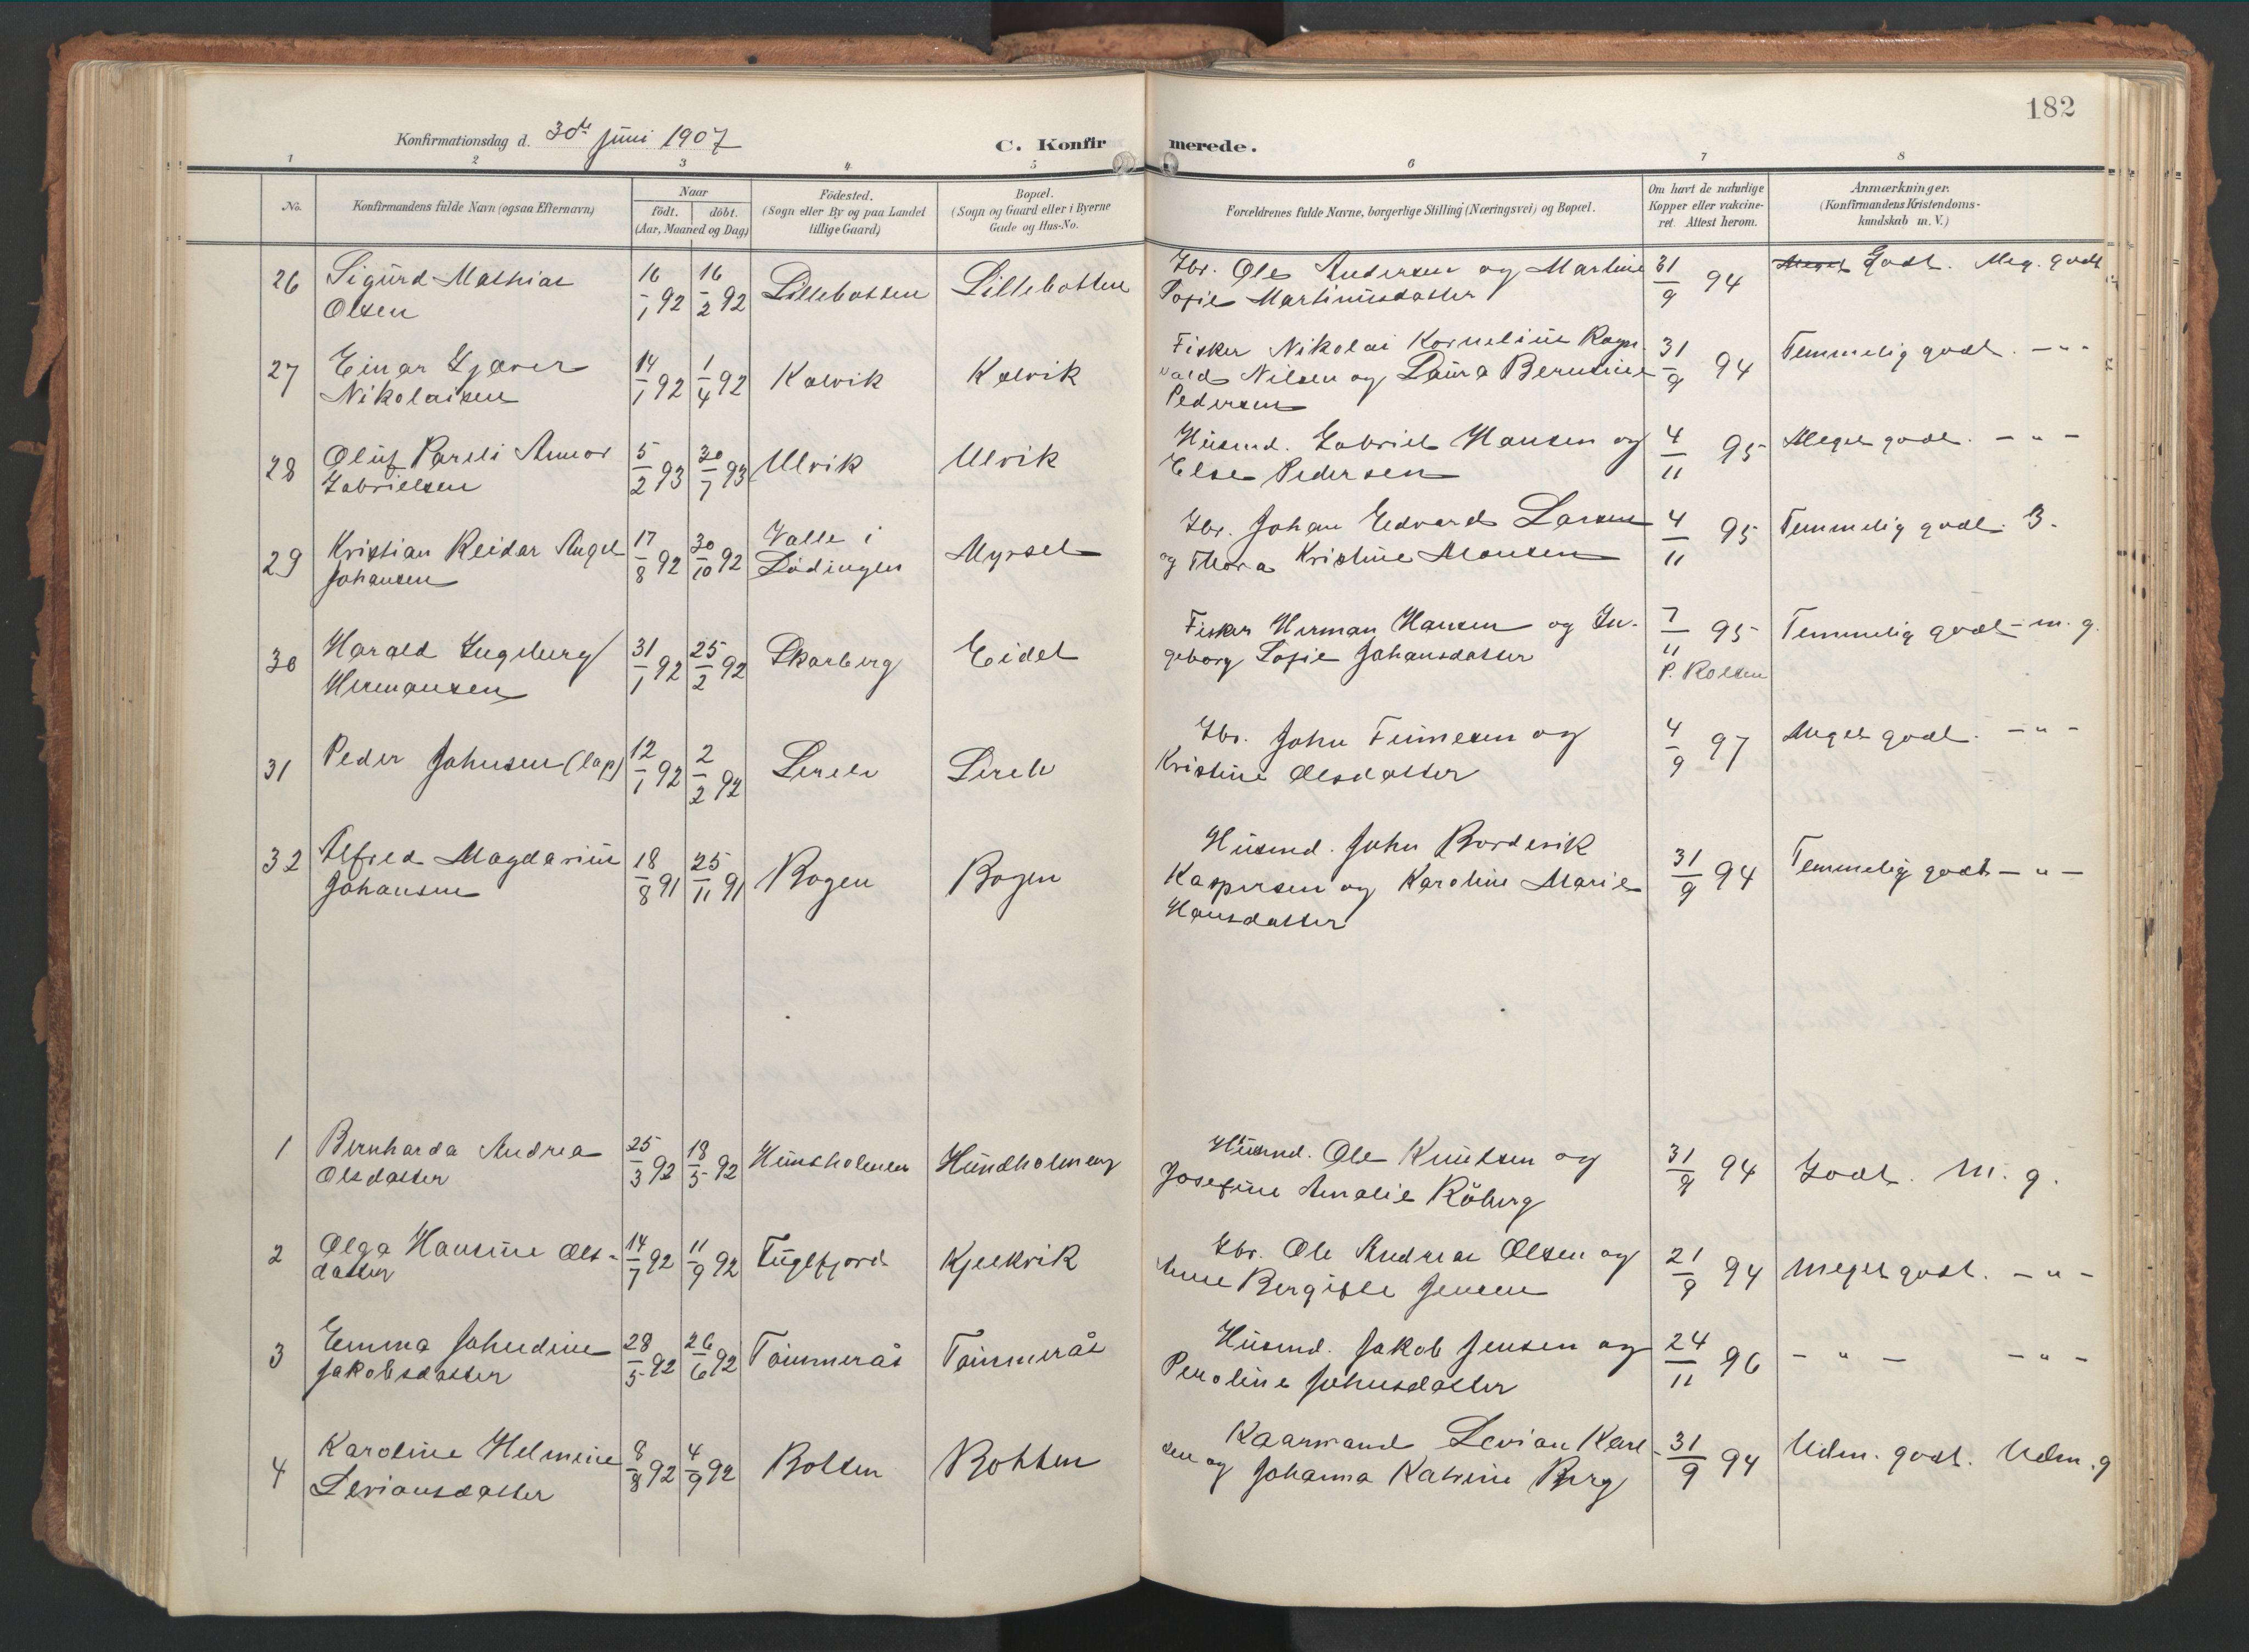 182
Konfirmationsdag d. 30te Juni 1907
C. Konfirmerede.
1 2 3 4 5 6 7 8
No.
Konfirmandens fulde Navn (ogsaa Efternavn)
Naar
födt. döbt.
(Aar, Maaned og Dag)
Födested.
(Sogn eller By og paa Landet
tillige Gaard)
Bopæl.
(Sogn og Gaard eller i Byerne
Gade og Hus-No.
Forældrenes fulde Navne, borgerlige Stilling (Næringsvei) og Bopæl.
Om havt de naturlige
Kopper eller vakcine-
ret. Attest herom.
Anmærkninger.
(Konfirmandens Kristendoms-
kundskab m. V.)
26 Sigurd Mathias
Olsen
16/1 92 16/2 92 Lillebotten Lillebotten
Gbr. Ole Andersen og Martine
Sofie Martinusdatter
31/9 94 Godt. Meg. godt
27 Einar Gjæver
Nikolaisen
14/1 92 1/4 92 Kalvik Kalvik
Fisker Nikolai Kornelius Ragn-
vald Nilsen og Laura Berntine
Pedersen
31/9 94 Temmelig godt. - " -
28 Oluf Pareli Annor
Gabrielsen
5/2 93 30/7 93 Ulvik Ulvik
Husmd. Gabriel Hansen og
Else Pedersen
4/11 95 Meget godt. - " -
29 Kristian Reidar Angel
Johansen
17/8 92 30/10 92 Valle i
Lødingen Myrsel
Gbr. Johan Edvard Larsen
og Thora Kristine Monsen
4/11 95 Temmelig godt. B.
30 Harald Ingeberg
Hermansen
31/1 92 25/2 92 Skarberg Eidet
Fisker Herman Hansen og In-
geborg Sofie Johansdatter
7/11 95 Temmelig godt - m. g.
P. Rolsen
31 Peder Johnsen (lap)
12/1 92 2/2 92
Gbr. John Finnesen og
Kristine Olsdatter
4/9 97 Meget godt. - " -
32 Alfred Magdarius
Johansen
18/8 91 25/11 91 Bogen Bogen
Husmd. John Bordevik
Kaspersen og Karoline Marie
Hansdatter
31/9 94 Temmelig godt - " -
1 Bernharda Andrea
Olsdatter
25/3 92 18/5 92 Hundholmen Hundholmen
Husmd. Ole Knutsen og
Josefine Amalie Röberg
31/9 94 Godt. M. g.
2 Olga Hansine Ols-
datter
14/7 92 11/9 92 Fuglfjord Kjelkvik
Gbr. Ole Andreas Olsen og
Anne Bergitte Jensen
21/9 94 Meget godt. - " -
3 Emma Johndine
Jakobsdatter
28/5 92 26/6 92 Tömmerås Tömmerås
Husmd. Jakob Jensen og
Peroline Johnsdatter
24/11 96 - " - - " -
4 Karoline Helmine
Leviansdatter
8/8 92 4/9 92 Botten Botten
Kaarmand Levian Karl-
sen og Johanna Katrine Berg
31/9 94 Udm. godt. Udm. g